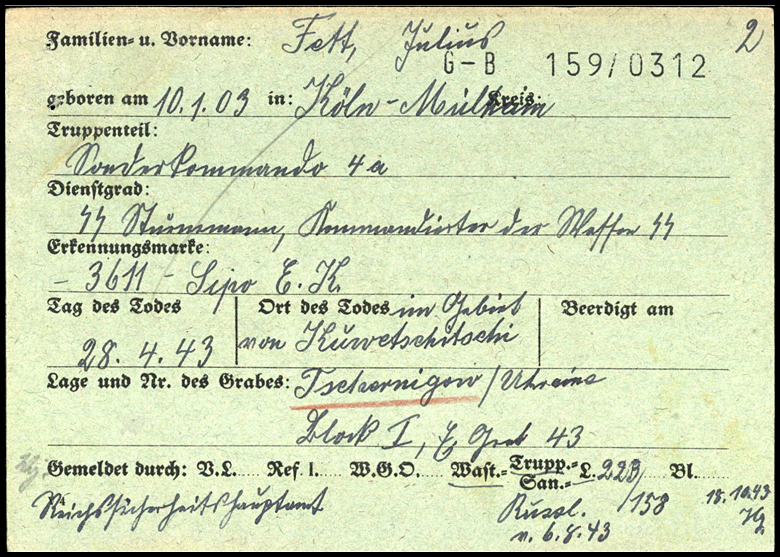 Familien- u. Vorname: Fett, Julius 2
G-B 159/0312
geboren am 10.1.03 in: Köln-Mülheim Kreis:
Truppenteil:
Sonderkommando 4a
Dienstgrad:
SS Sturmmann, Kommandierter der Waffen SS
Erkennungsmarke:
- 3611 - Sipo E. K.
Tag des Todes Ort des Todes im Gebiet Beerdigt am
28. 4. 43 von Kuwetschitschi
Lage und Nr. des Grabes: Tschernigow/Ukraine
Block I, Grab 43
Gemeldet durch: V.L. Ref I. W.G.O. Wast.- Trupp.- San.- L. 223 Bl.
Reichssicherheitshauptamt Russl. /158 18.10.43
v. 6.8.43